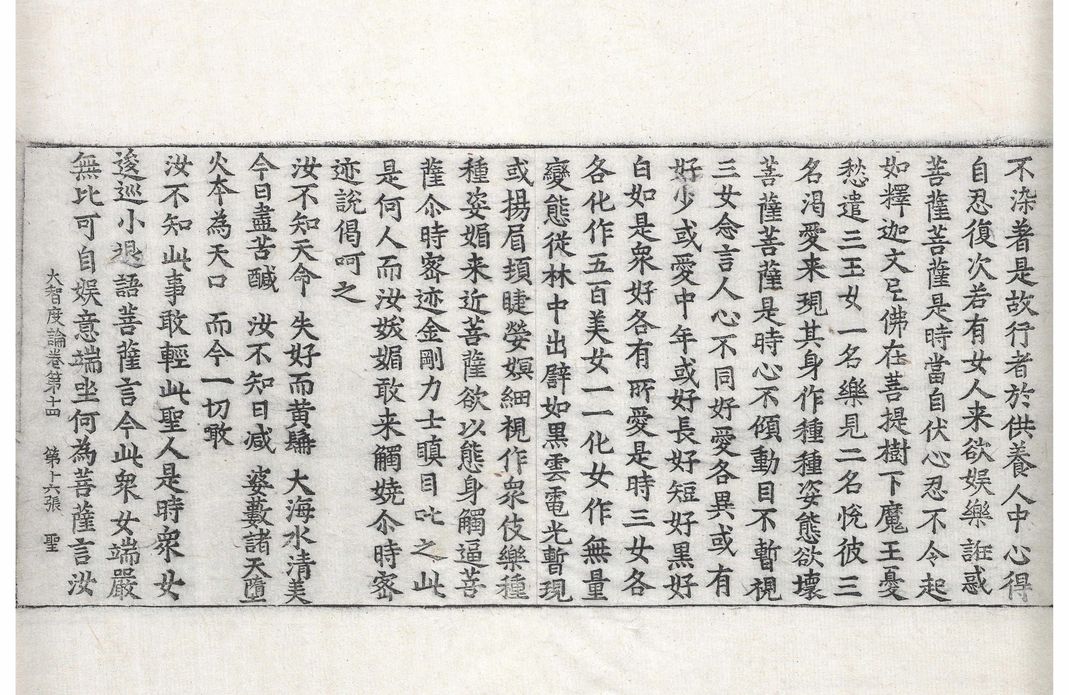 不染著是故行者於供養人中心得
自忍復次若有女人来欲娛樂誑惑
菩薩菩薩是時當自伏心忍不令起
如釋迦文尼佛在菩提樹下魔王憂
愁遣三玉女一名樂見二名悅彼三
名渴愛来現其身作種種姿態欲壞
菩薩菩薩是時心不傾動目不暫視
三女念言人心不同好愛各異或有
好少或愛中年或好長好短好黑好
白如是衆好各有所愛是時三女各
各化作五百美女一一化女作無量
變態從林中出譬如黒雲電光暫現
或揚眉頓睫嫈嫇細視作衆伎樂種
種姿媚来近菩薩欲以態身觸逼菩
薩尒時密迹金剛力士瞋目叱之此
是何人而汝妖媚敢来觸嬈尒時密
迹說偈呵之
汝不知天命 失好而黄髯 大海水清美
今日盡苦醎 汝不知日减 婆藪諸天墮
火本為天口 而今一切噉
汝不知此事敢輕此聖人是時衆女
逡巡小退語菩薩言今此衆女端嚴
無比可自娛意端坐何為菩薩言汝
大智度論卷第十四 第十六張 聖